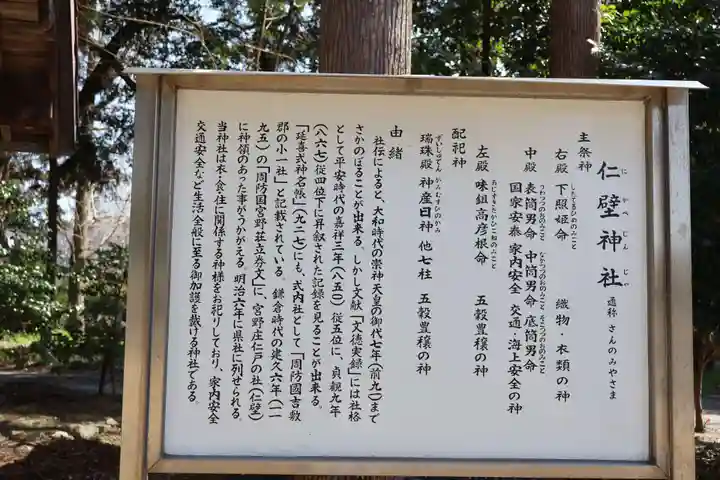 仁壁神社 通称 さんのみやさま
にかべじんじゃ
主祭神
右殿 下照姫命 織物・衣類の神
したてるひめのみこと
中殿 表筒男命 中筒男命 底筒男命
うわつつのおのみこと なかつつのおのみこと そこつつのおのみこと
国家安泰 家内安全 交通・海上安全の神
左殿 味鉏高彦根命 五穀豊穣の神
あじすきたかひこねのみこと
配祀神
瑞珠殿 神産日神 他七柱 五穀豊穣の神
ずいしゅでん かみむすひのかみ
由緒
社伝によると、大和時代の崇神天皇の御代七年(前九一)まで
さかのぼることが出来る。しかし文献「文徳実録」には社格
として平安時代の嘉祥三年(八五〇)従五位下に、貞観九年
(八六七)従四位下に昇叙された記録を見ることが出来る。
「延喜式神名帳」(九二七)にも、式内社として「周防國吉敷
郡の小一社」と記載されている。鎌倉時代の建久六年(一一
九五)の「周防国宮野荘立券文」に、宮野庄仁戸の社(仁壁)
に神領のあった事がうかがえる。明治六年に県社に列せられる。
当神社は衣・食・住に関係する神様をお祀りしており、家内安全
交通安全など生活全般に至る御加護を戴ける神社である。